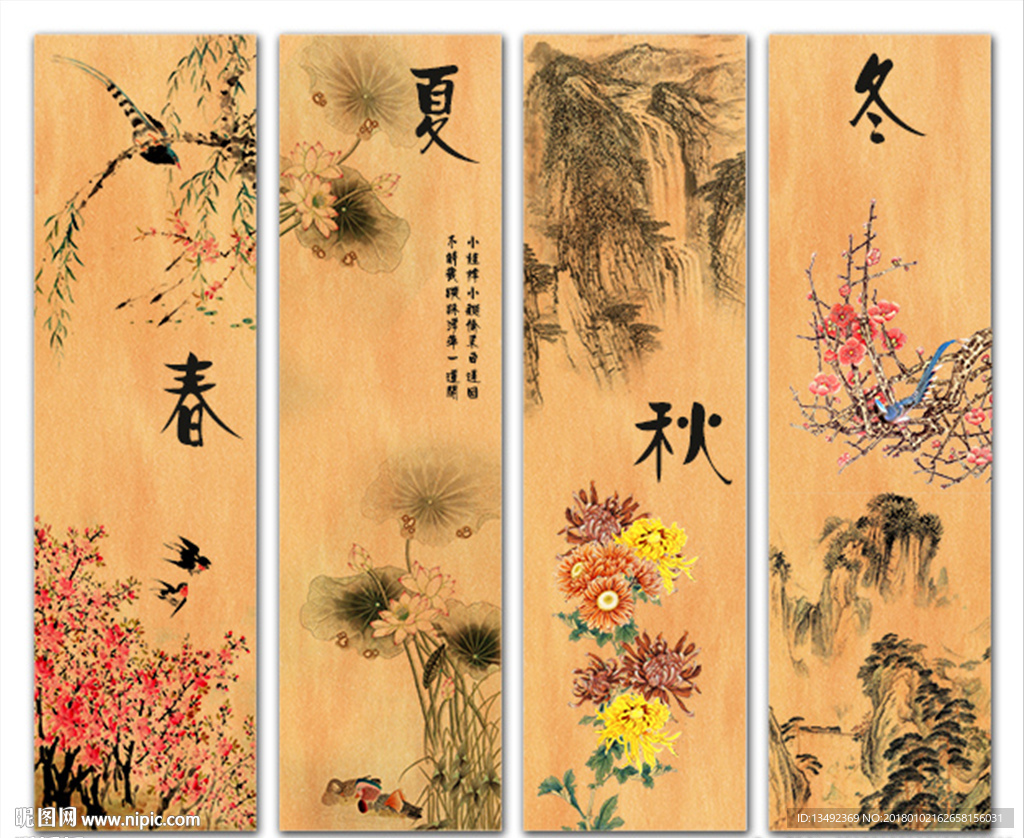 春
夏
小娃撐小艇偷采白蓮回
不解藏蹤跡浮萍一道開
秋
冬
昵图网 www.nipic.com
ID:13492369 NO:20180102162658156031